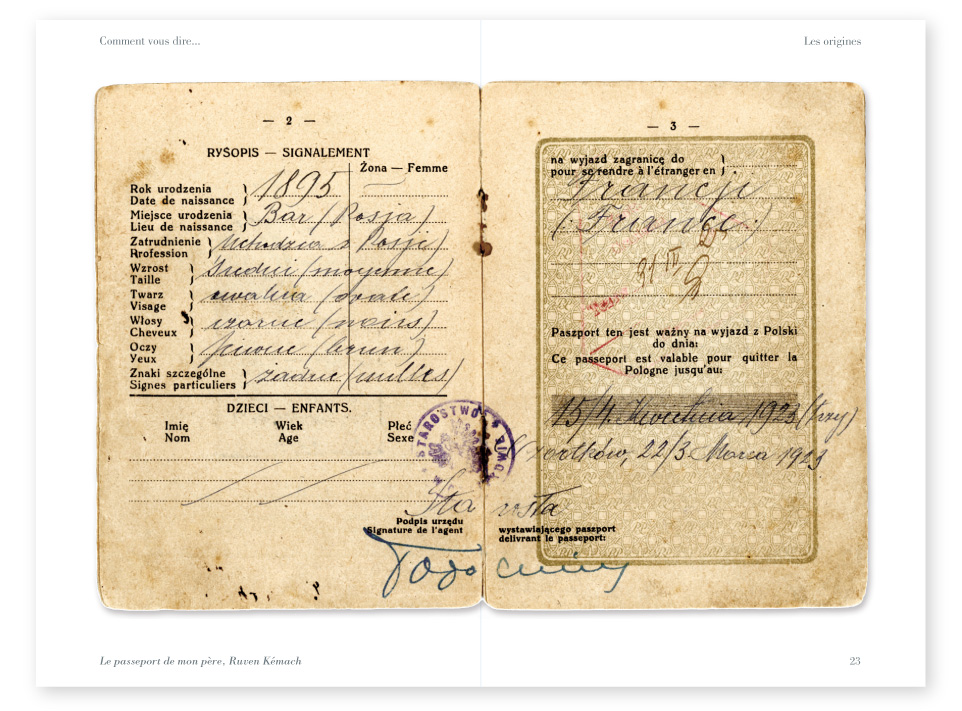 Comment vous dire...
Les origines
— 2 —
RYSOPIS — SIGNALEMENT
Żona — Femme
Rok urodzenia
Date de naissance
1895
Miejsce urodzenia
Lieu de naissance
Bar (Rosja)
Zatrudnienie
Rrofession
Uchodźca z Rosji
Wzrost
Taille
średni (moyenne)
Twarz
Visage
owalna (ovale)
Włosy
Cheveux
czarne (noirs)
Oczy
Yeux
piwne (brun)
Znaki szczególne
Signes particuliers
żadne (nulles)
DZIECI — ENFANTS.
Imię
Nom
Wiek
Age
Płeć
Sexe
STAROSTWO
Podpis urzędu
Signature de l'agent
— 3 —
na wyjazd zagranicę do
pour se rendre à l'étranger en
Francji
(France)
Paszport ten jest ważny na wyjazd z Polski
do dnia:
Ce passeport est valable pour quitter la
Pologne jusqu'au:
15/4 Kwietnia 1923 (trzy)
Czortków, 22/3 Marca 1923
Starosta
wystawiającego paszport
delivrant le passeport:
Le passeport de mon père, Ruven Kémach
23